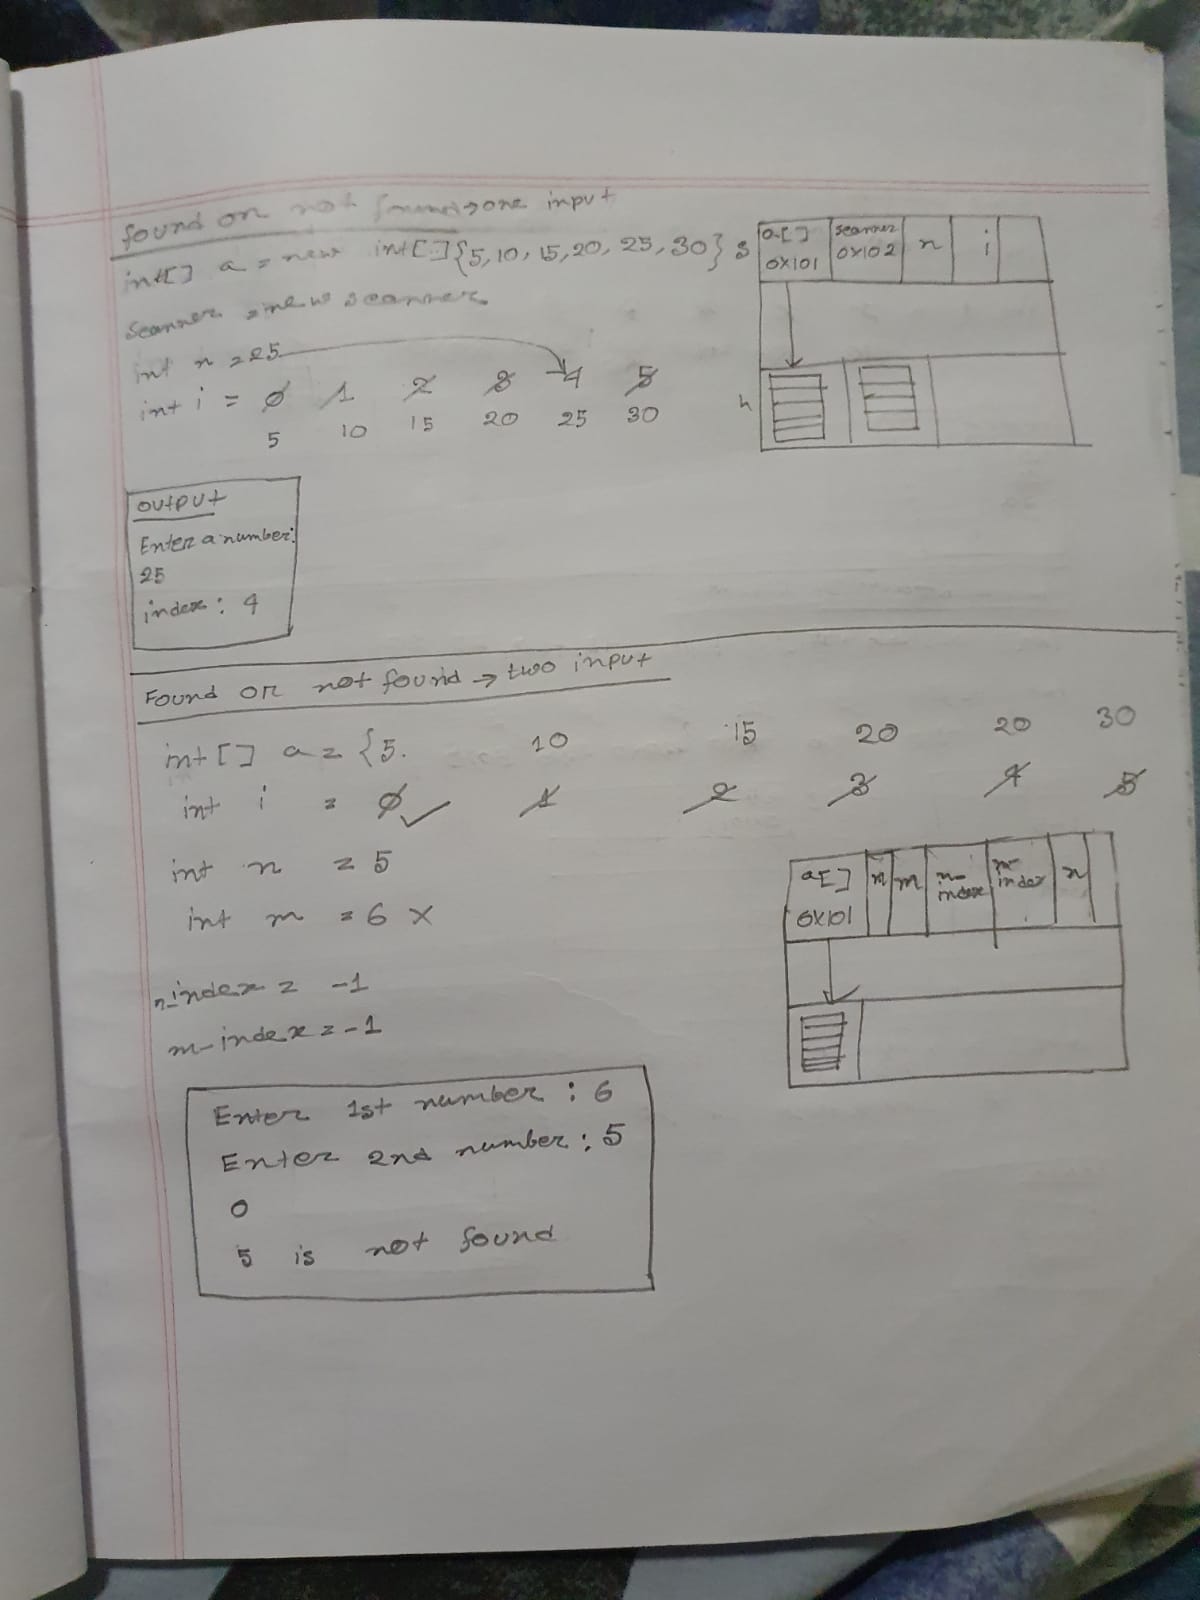 found or not found → one input
int[] a = new int[]{5, 10, 15, 20, 25, 30};
Scanner = new scanner
int n = 25
int i = 0 1 2 3 4 5
5 10 15 20 25 30
a[] scanner n i
0x101 0x102
h
output
Enter a number:
25
index: 4
Found or not found → two input
int[] a = {5. 10 15 20 20 30
int i = 0 1 2 3 4 5
int n = 5
int m = 6 X
n_index = -1
m-index = -1
a[] n m n- index m- index n
0x101
Enter 1st number : 6
Enter 2nd number : 5
0
5 is not found